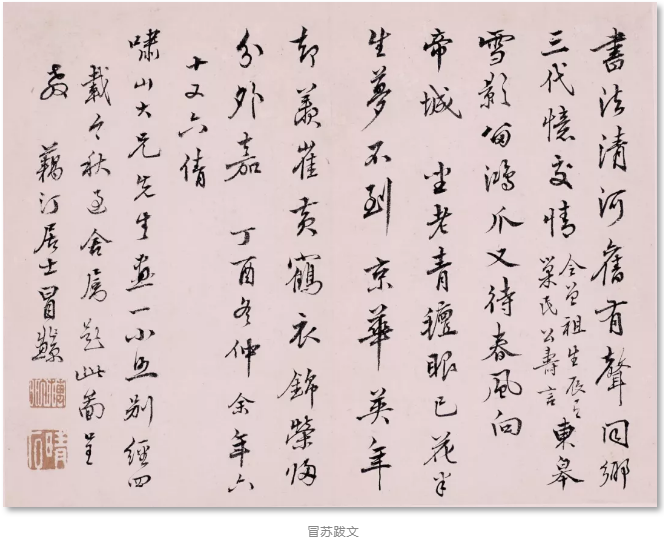 書法清河舊有聲同鄉
三代憶交情令曾祖生辰乞巢民公壽言東皋
雪影留鴻爪又待春風向
帝城 坐老青氊眼已花半
生夢不到京華英年
却羨崔黃鶴衣錦榮歸
分外嘉 丁酉冬仲余年六
十又六倩
嘯山大兄先生畫一小照别經四
載今秋過舍属題此圖呈
教 藕汀居士冒蘇
冒苏跋文